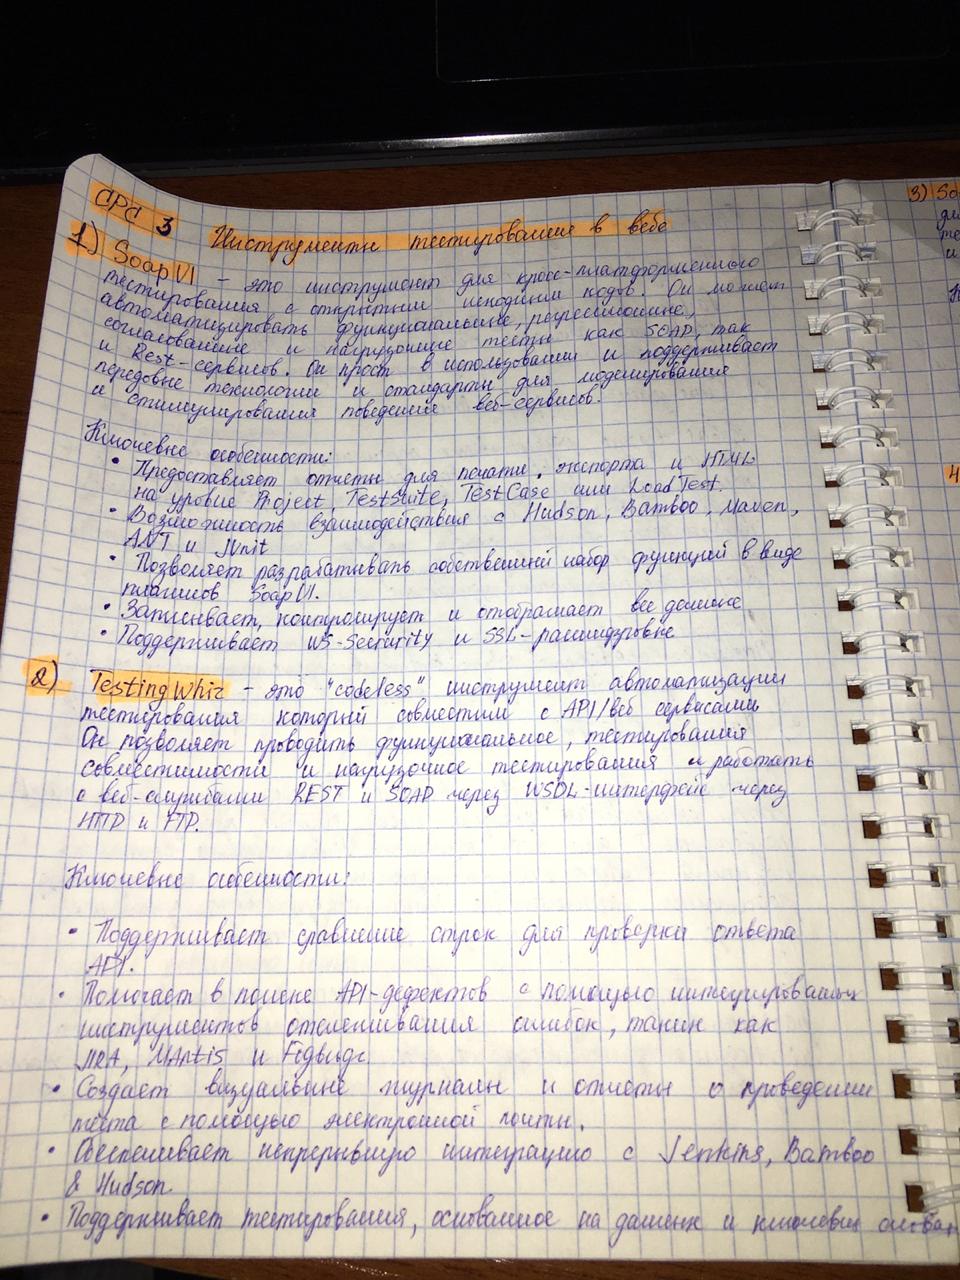 СРС 3 Инструменты тестирования в вебе
1) SoapUI - это инструмент для кросс-платформенного
тестирования с открытым исходным кодов. Он может
автоматизировать функциональные, регрессионные,
согласованные и нагрузочные тесты как SOAP, так
и Rest-сервисов. Он прост в использовании и поддерживает
передовые технологии и стандарты для моделирования
и стимулирования поведения веб-сервисов.
Ключевые особенности:
• Предоставляет отчеты для печати, экспорта и HTML
на уровне Project, TestSuite, TestCase или LoadTest.
• Возможность взаимодействия с Hudson, Bamboo, Maven,
ANT и JUnit
• Позволяет разрабатывать собственный набор функций в виде
плагинов SoapUI.
• Записывает, контролирует и отображает все данные
• Поддерживает WS-Security и SSL-расшифровке
2) TestingWhiz - это "codeless" инструмент автоматизации
тестирования который совместим с API/веб сервисами
Он позволяет проводить функциональное, тестирования
совместимости и нагрузочное тестирования и работать
с веб-службами REST и SOAP через WSDL-интерфейс через
HTTP и FTP.
Ключевые особенности:
• Поддерживает сравнение строк для проверки ответа
API.
• Помогает в поиске API-дефектов с помощью интегрированных
инструментов отслеживания ошибок, таких как
JIRA, Mantis и Fogbugz.
• Создает визуальные журналы и отчеты о проведении
теста с помощью электронной почты.
• Обеспечивает непрерывную интеграцию с Jenkins, Bamboo
& Hudson.
• Поддерживает тестирования, основанное на данных и ключевых словах
3) So
4